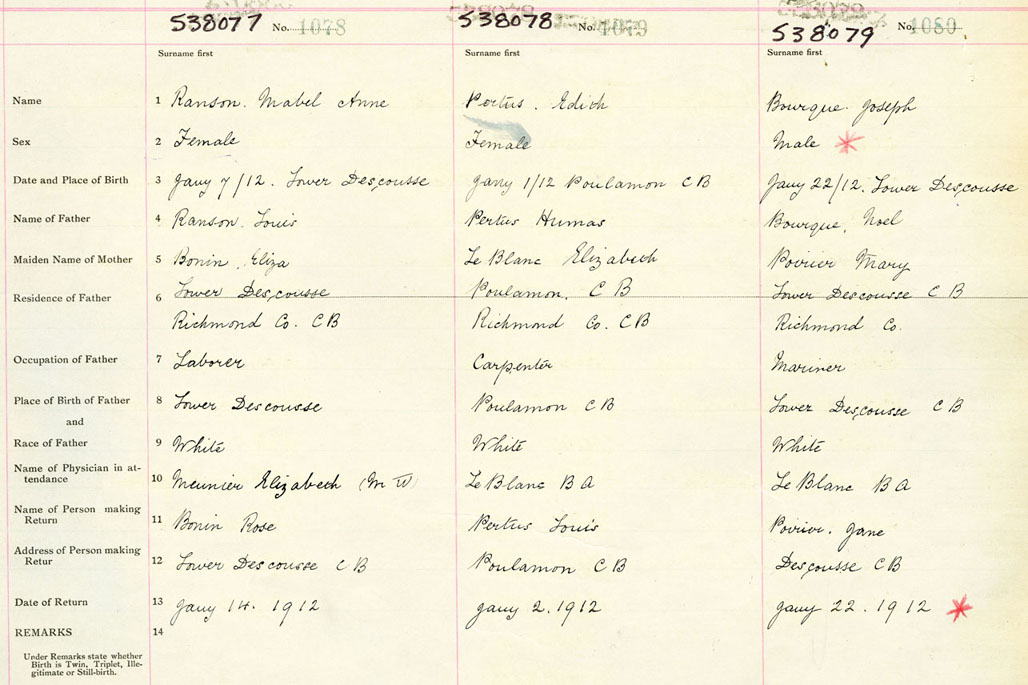 538077 No. 1078 538078 No. 1079 538079 No. 1080
Surname first Surname first Surname first
Name 1 Ranson. Mabel Anne Pertus. Edith Bourque. Joseph
Sex 2 Female Female Male *
Date and Place of Birth 3 Jany 7/12. Lower Descousse Jany 1/12 Poulamon C B Jany 22/12. Lower Descousse
Name of Father 4 Ranson. Louis Pertus Humas Bourque, Noel
Maiden Name of Mother 5 Bonin, Eliza Le Blanc Elizabeth Poirier Mary
Residence of Father 6 Lower Descousse Poulamon, C B Lower Descousse C B
Richmond Co. C B Richmond Co. C B Richmond Co.
Occupation of Father 7 Laborer Carpenter Mariner
Place of Birth of Father 8 Lower Descousse Poulamon C B Lower Descousse C B
and
Race of Father 9 White White White
Name of Physician in at-
tendance 10 Meunier Elizabeth (M W) Le Blanc B A Le Blanc B A
Name of Person making
Return 11 Bonin Rose Pertus Louis Poirier. Jane
Address of Person making
Retur 12 Lower Descousse C B Poulamon C B Descousse C B
Date of Return 13 Jany 14. 1912 Jany 2. 1912 Jany 22. 1912 *
REMARKS 14
Under Remarks state whether
Birth is Twin, Triplet, Ille-
gitimate or Still-birth.